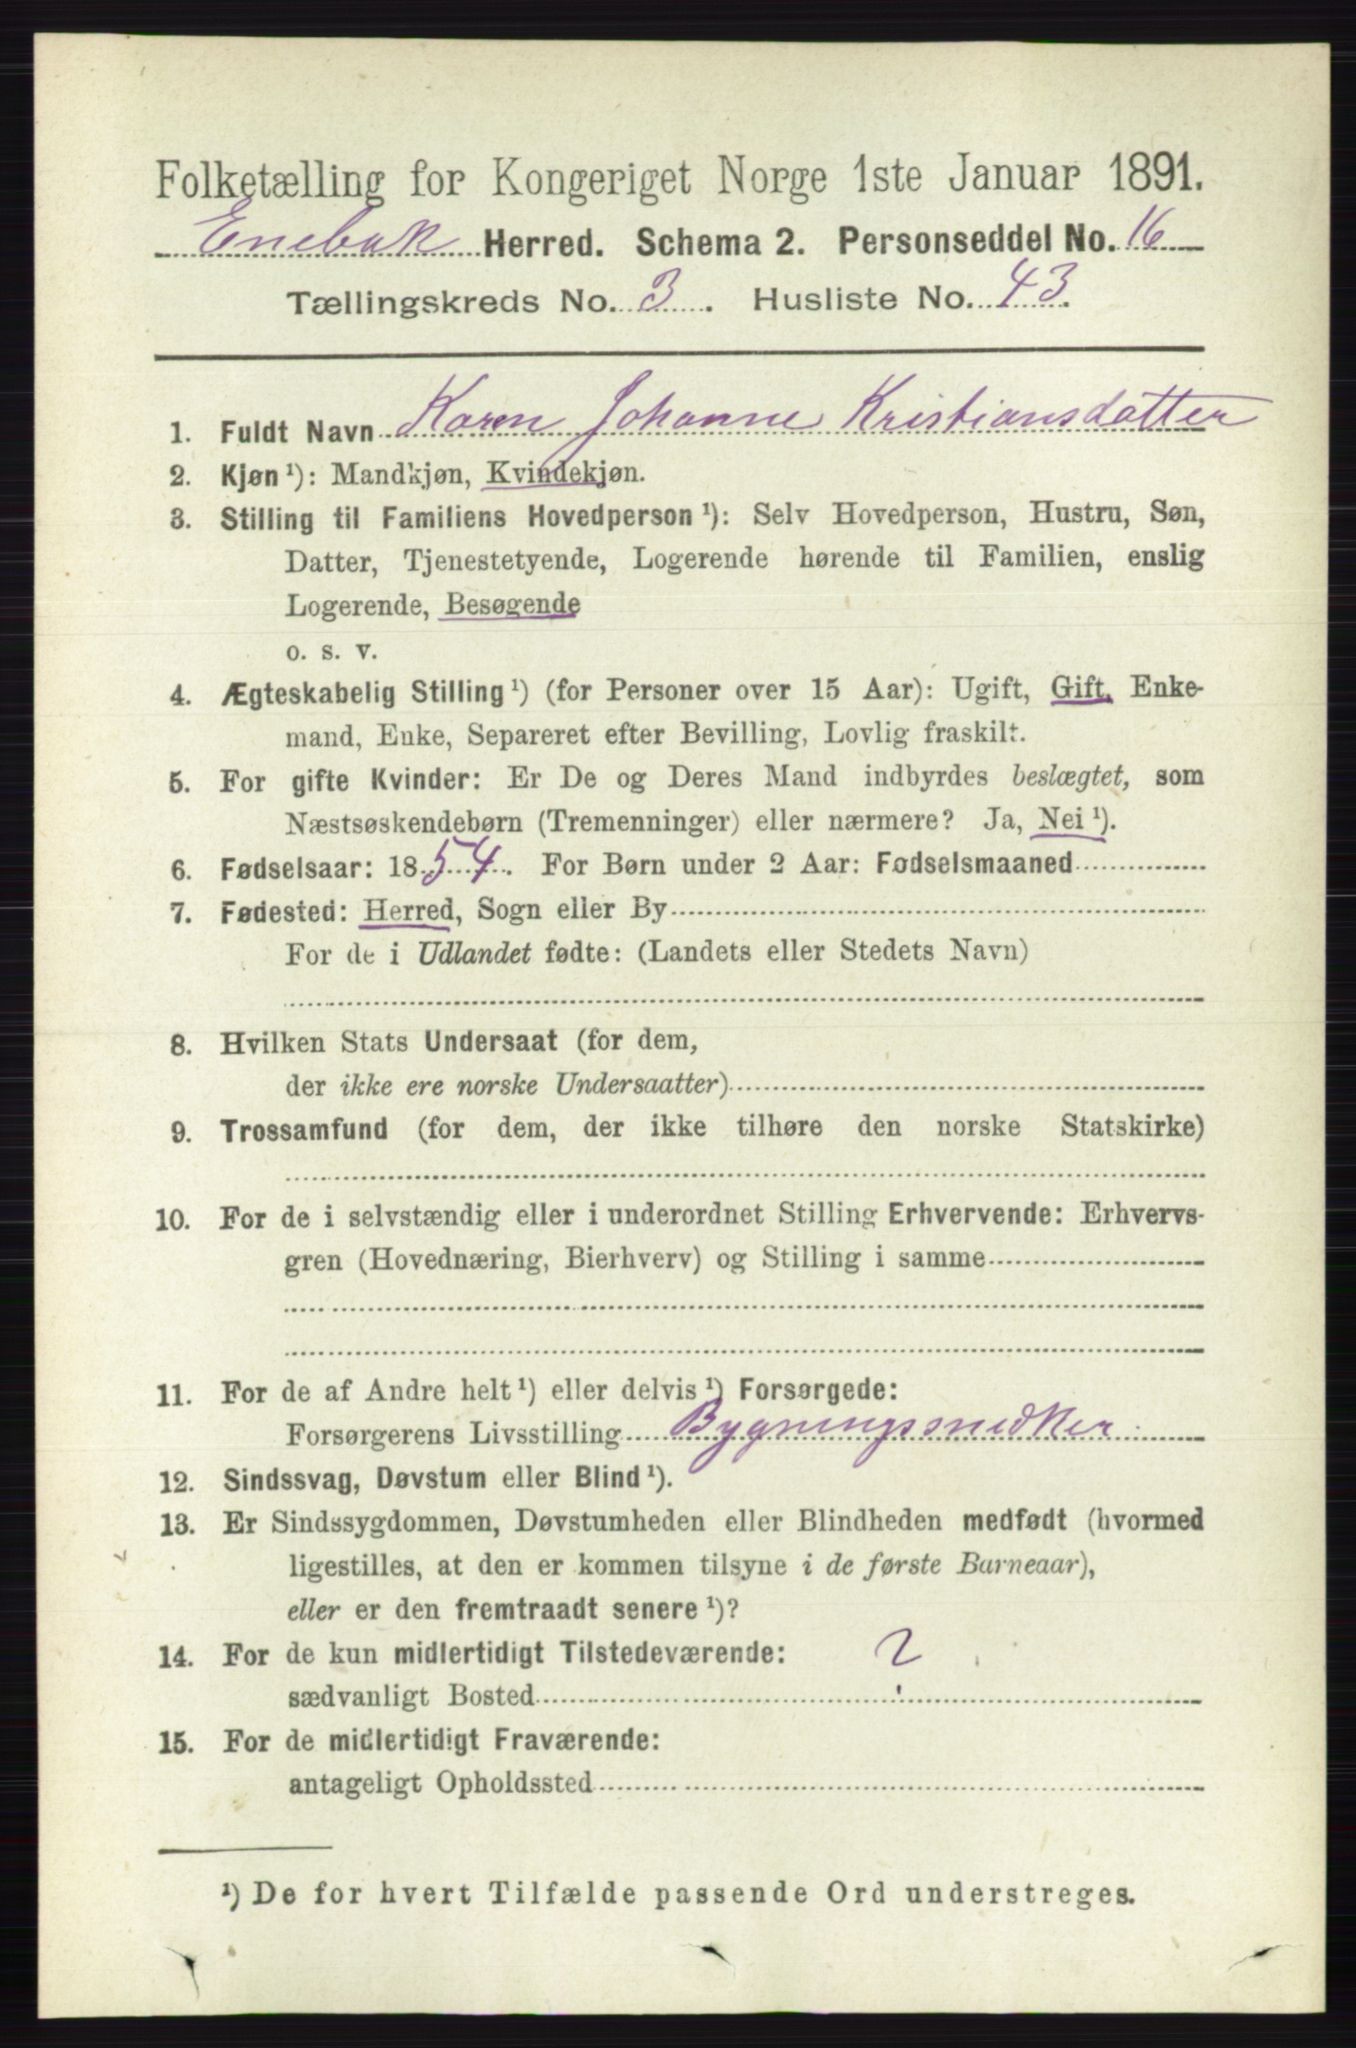 Folketælling for Kongeriget Norge 1ste Januar 1891.
Enebak Herred. Schema 2. Personseddel No. 16
Tællingskreds No. 3. Husliste No. 43.
1. Fuldt Navn Karen Johanne Kristiansdatter
2. Kjøn ¹): Mandkjøn, Kvindekjøn.
3. Stilling til Familiens Hovedperson ¹): Selv Hovedperson, Hustru, Søn,
Datter, Tjenestetyende, Logerende hørende til Familien, enslig
Logerende, Besøgende
o. s. v.
4. Ægteskabelig Stilling ¹) (for Personer over 15 Aar): Ugift, Gift, Enke-
mand, Enke, Separeret efter Bevilling, Lovlig fraskilt.
5. For gifte Kvinder: Er De og Deres Mand indbyrdes beslægtet, som
Næstsøskendebørn (Tremenninger) eller nærmere? Ja, Nei ¹).
6. Fødselsaar: 1854. For Børn under 2 Aar: Fødselsmaaned
7. Fødested: Herred, Sogn eller By
For de i Udlandet fødte: (Landets eller Stedets Navn)
8. Hvilken Stats Undersaat (for dem,
der ikke ere norske Undersaatter)
9. Trossamfund (for dem, der ikke tilhøre den norske Statskirke)
10. For de i selvstændig eller i underordnet Stilling Erhvervende: Erhvervs-
gren (Hovednæring, Bierhverv) og Stilling i samme
11. For de af Andre helt ¹) eller delvis ¹) Forsørgede:
Forsørgerens Livsstilling Bygningssnedker
12. Sindssvag, Døvstum eller Blind ¹).
13. Er Sindssygdommen, Døvstumheden eller Blindheden medfødt (hvormed
ligestilles, at den er kommen tilsyne i de første Barneaar),
eller er den fremtraadt senere ¹)?
14. For de kun midlertidigt Tilstedeværende:
sædvanligt Bosted ?
15. For de midlertidigt Fraværende:
antageligt Opholdssted
¹) De for hvert Tilfælde passende Ord understreges.